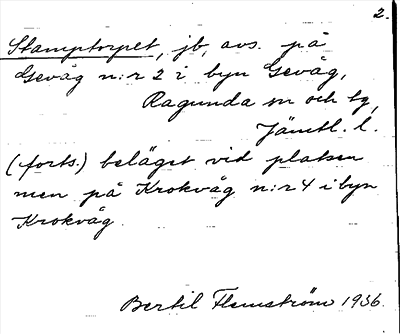 2.
Stamptorpet, jb, avs. på
Gevåg n:r 2 i byn Gevåg,
Ragunda sn och tg,
Jämtl. l.
(forts.) beläget vid platsen
men på Krokvåg n:r 4 i byn
Krokvåg.
Bertil Flemström 1936.